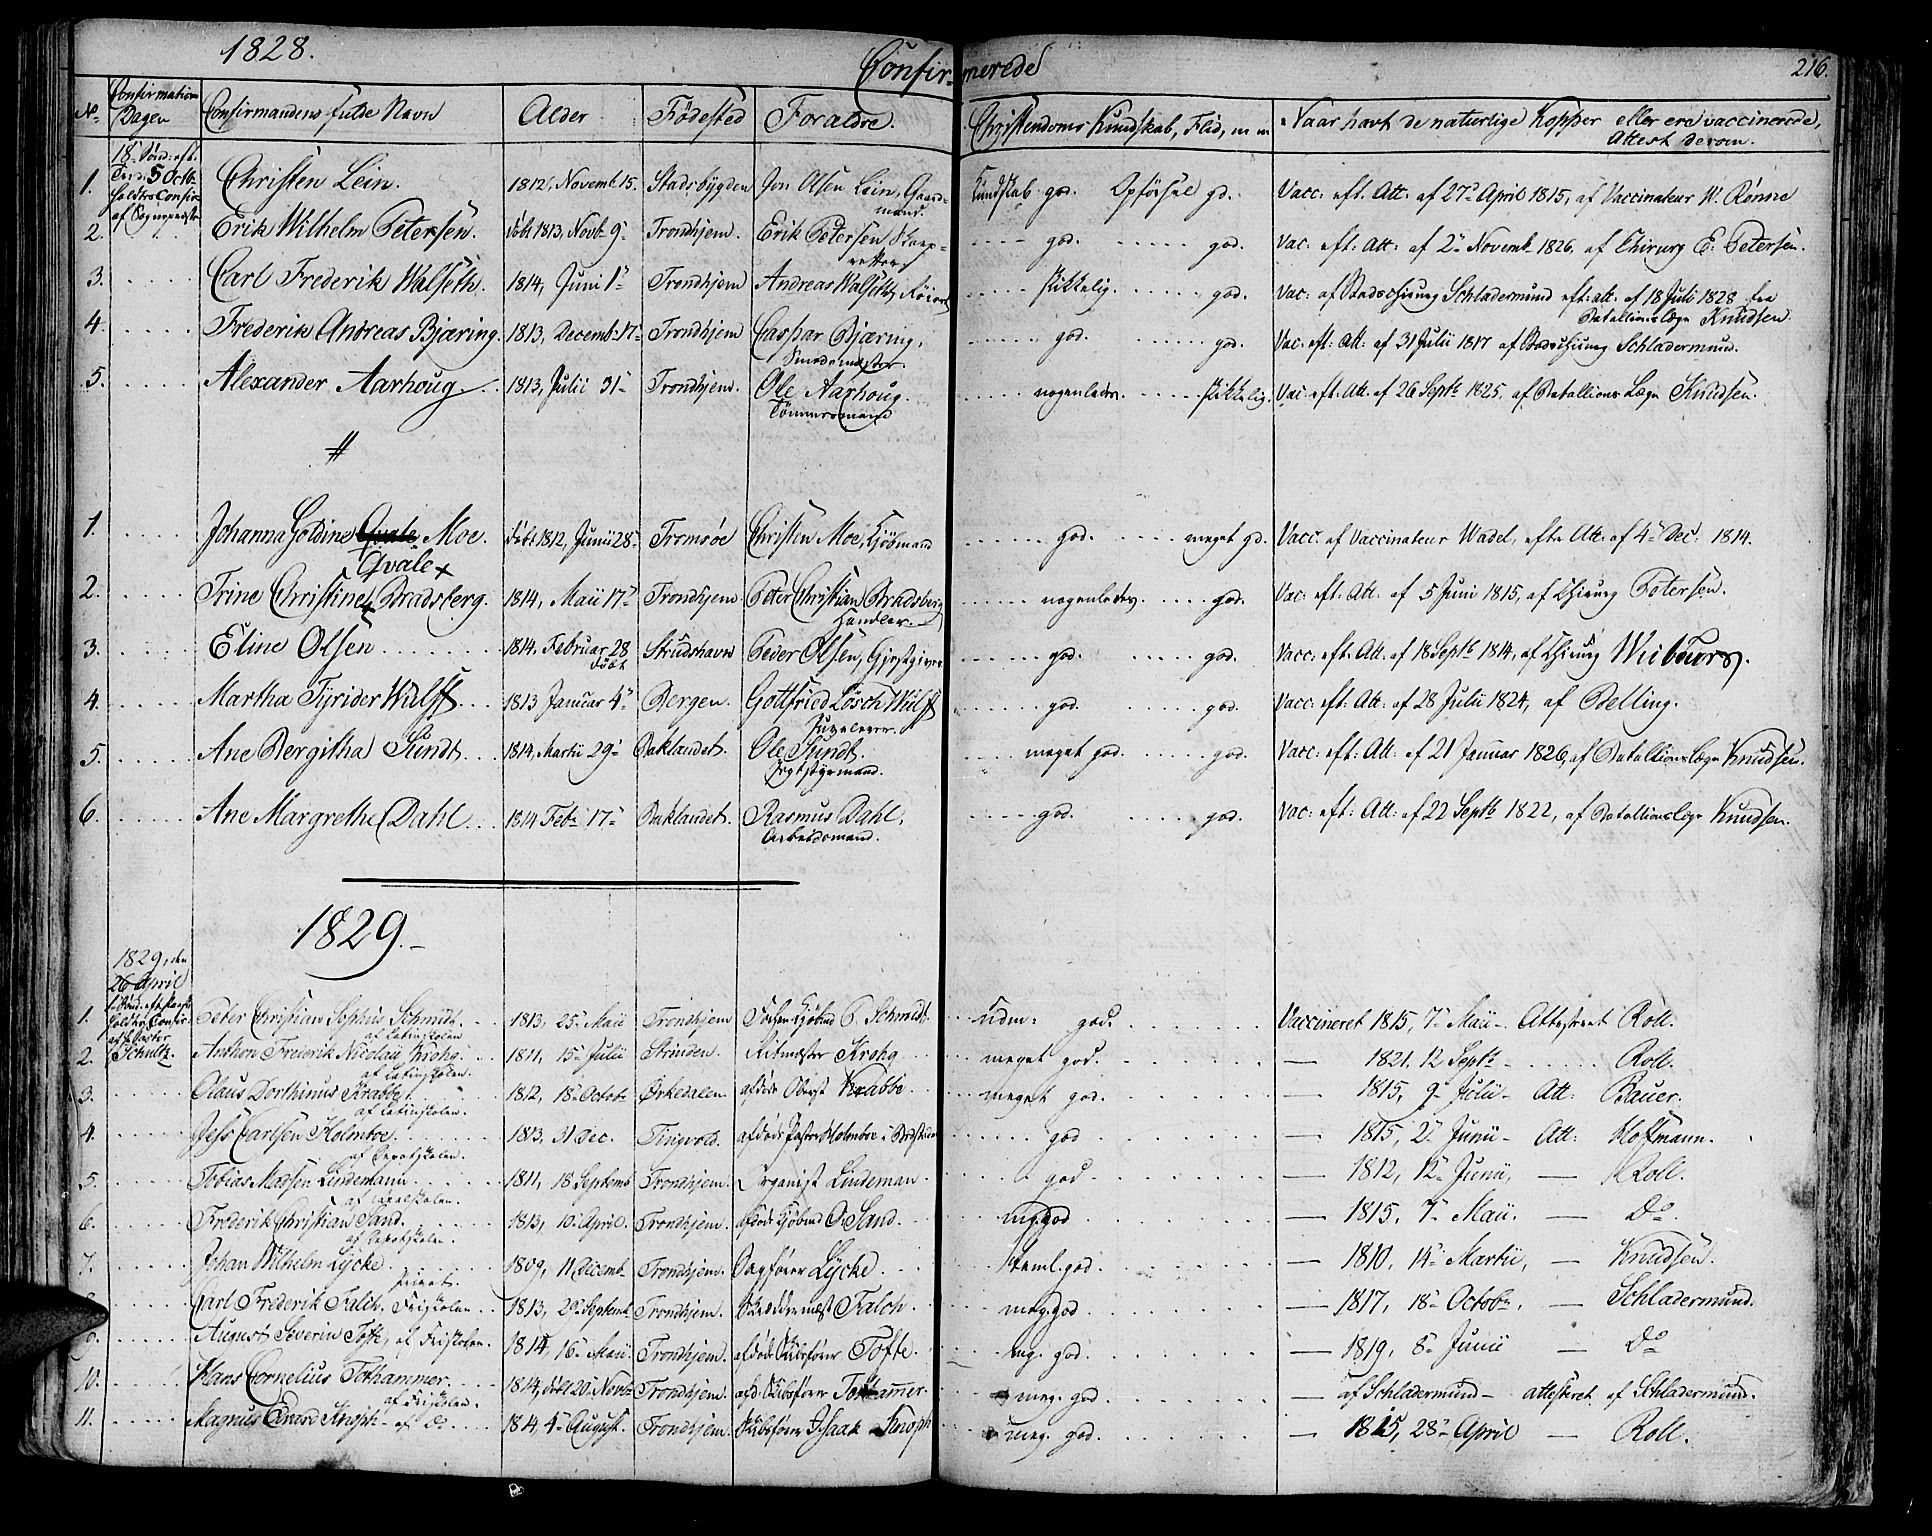 1828.
Confirmerede
216.
No.
Confirmations Dagen
Confirmandens fulde Navn
Alder
Fødested
Forældre.
Christendoms Kundskab, Flid, m m
Naar havt de naturlige Kopper eller ere vaccinerede, Attest derom.
18de Sønd: eft. Trin: 5 Octb: holdtes Confir: af Sognepræsten
1. Christen Lein. 1812, Novemb. 15. Stadsbygden Jon Olsen Lein, Gaardmand. Kundskab god. Opførsel gd. Vacc. eft. Att: af 27de April 1815, af Vaccinateur W. Rønne
2. Erik Wilhelm Petersen. døbt 1813, Novb. 9de Trondhjem. Erik Petersen god. god. Vac: eft: Att: af 2de Novemb. 1826, af Chirurg E: Petersen.
3. Carl Frederik Walseth. 1814, Juni 1ste Trondhjem Andreas Walseth, skikkelig. god. Vac: af Stadschirurg Schladermund eft: att: af 18 Juli 1828 fra Batallionslæge Knudsen.
4. Frederik Andreas Bjæring. 1813, Decemb: 17de Trondhjem Caspar Bjæring, Smedemester. god. god. Vac: eft: Att: af 31 Julii 1817 af Stadschirurg Schladermund.
5. Alexander Aarhoug. 1813, Julii 31te Trondhjem. Ole Aarhoug. Tømmermand nogenledes. skikkelig. Vac: eft: Att. af 26 Septb. 1825, af Batallions Læge Knudsen.
#
1. Johanna Goldine Qvale Moe. døbt 1812, Junii 28de Tromsøe Christen Moe, Kjøbmand god. meget gd. Vacc: af Vaccinateur Wadel, efter Att: af 4de Dec: 1814.
Qvale x
2. Trine Christine Bradsberg. 1814, Maii 17de Trondhjem Peter Christian Bradsberg Handler. nogenledes. god. Vac: eft: Att: af 5 Juni 1815, af Chirurg Petersen.
3. Eline Olsen 1814, Februar 28 døbt Strudshavn Peder Olsen, Gjestgiver god. god. Vacc: eft: Att: af 18 Septb 1814, af Chirurg
4. Martha Tyrider Wulff 1813 Januar 4de Bergen. Gottfried Lösch Wulff Juveleer. god. god. Vacc: eft: Att: af 28 Julii 1824, af Belling.
5. Ane Bergitha Sundt. 1814, Martii 29de Baklandet. Ole Sundt. Jegtstyrmand. meget god. god. Vacc: eft: Att: af 21 Januar 1826, af Batallionslæge Knudsen.
6. Ane Margrethe Dahl. 1814 Feb: 17de Baklandet. Rasmus Dahl. Arbeidsmand. god. god. Vac: eft: Att: af 22 Septb 1822, af Batallionslæge Knudsen.
1829.
1829, den 26 April
holdtes Confir: af Pastor Schultz.
1. Peter Christian Sophus Schmidt. af Latinskolen 1813, 25de Maii Trondhjem Kjøbmd P. Schmidt. Udm: god. Vaccineret 1815, 7de Maii Attesteret Roll.
2. Anthon Frederik Nicolai Krohg. af Latinskolen. 1811, 15de Julii Strinden. Ritmester Krohg meget god. 1821, 12 Septb. Roll.
3. Claus Dorthinus Krabbe. af Latinskolen. 1812, 18de Octob: Ørkedalen. afdøde Oberst Krabbe meget god. 1815, 9de Julii Att: Bauer.
4. Jess Carlsen Holmboe. 1813, 31 Dec. Tingvold. afdøde Pastor Holmboe i god 1815, 2de Junii Att: Hoffmann.
5. Tobias Madsen Lindemann af Realskolen. 1811, 18 Septemb Trondhjem. Organist Lindeman. god 1812, 12de Junii, Roll.
6. Frederik Christian Sand. 1813, 10 April. Trondhjem. afdøde Kjøbmd O: Sand. meg. god 1815, 7de Maii. Do
7. Johan Wilhelm Lycke privat. 1809, 11 Decemb. Trondhjem. Dagfører Lycke teml. god. 1810, 14de Martii, Knudsen.
8. Carl Frederik Falch, Friskolen 1813, 29de Septemb Trondhjem. Falch meg. god 1817, 18de Octob:, Schladermund.
9. August Severin Tofte, af Friskolen. 1814, 16de Maii. Trondhjem. afdøde Skibsfører Tofte. meg. god. 1819, 8de Junii Do
10. Hans Cornelius Tothammer. af Friskolen. 1814, døbt 20 Novb. Trondhjem. afd: Skibsfører Tothammer. meg. god af Schladermund attesteret af Schladermund.
11. Magnus Knoph af Do 1814, 4de August. Trondhjem. Skibsfører Isaak Knoph meg. god. 1815, 28de April Roll.